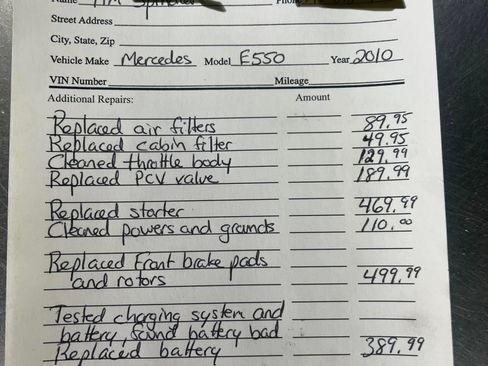 Name
Phone
Street Address
City, State, Zip
Vehicle Make Mercedes Model E550 Year 2010
VIN Number Mileage
Additional Repairs: Amount
Replaced air filters 89.95
Replaced cabin filter 49.95
Cleaned throttle body 129.99
Replaced PCV valve 189.99
Replaced starter 469.99
Cleaned powers and grounds 110.00
Replaced front brake pads
and rotors 499.99
Tested charging system and
battery, found battery bad
Replaced battery 389.99